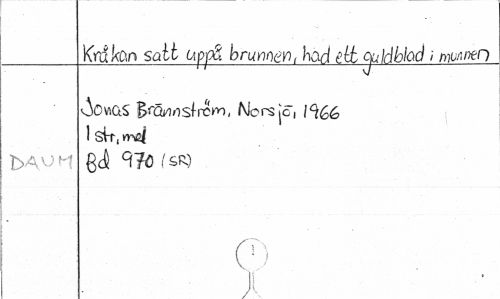 Kråkan satt uppå brunnen, had ett guldblad i munnen
Jonas Brännström, Norsjö, 1966
1 str, mel
DAUM Bd 970 (SR)